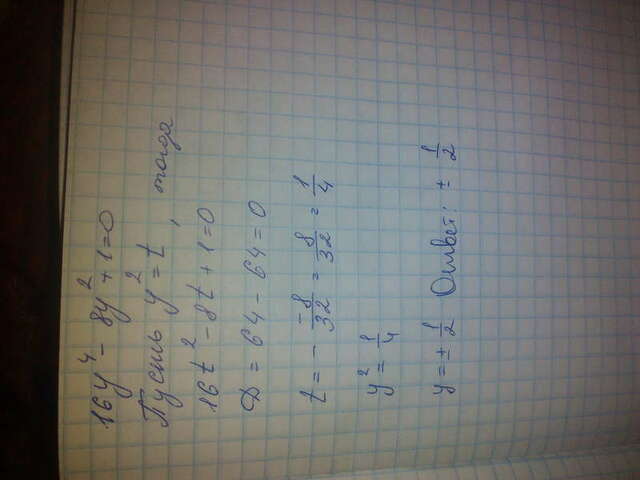 16y⁴ - 8y² + 1 = 0
Пусть y² = t, тогда
16t² - 8t + 1 = 0
D = 64 - 64 = 0
t = - -8/32 = 8/32 = 1/4
y² = 1/4
y = ± 1/2 Ответ: ± 1/2